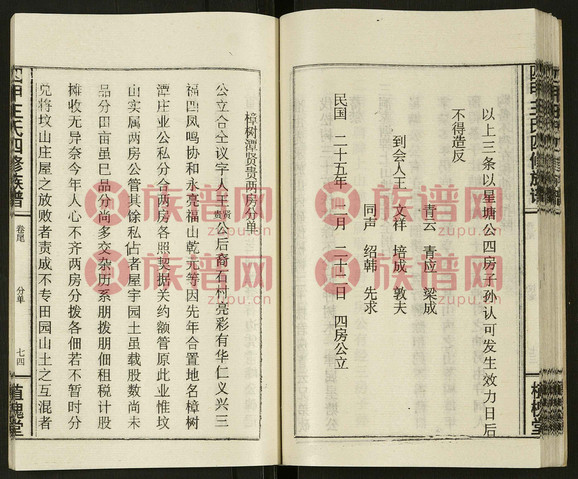 以上三条以星塘公四房子孙认可发生效力日后
不得造反
青云 青应 梁成
到会人王 文祥 培成 敦夫
同声 绍韩 先求
民国 二十五年 月 二十二日 四房公立
樟树潭贤贵两房分单
公立合仝议字人王贤贵公后裔石村亮彩有华仁义兴三
福四凤鸣协和永亮福山乾元等因先年合置地名樟树
潭庄业公私分合两房各照契据关约额管原此业惟坟
山实属两房公管其馀私佔者屋宇园土虽载股数尚未
品分田亩虽巳品分尚多交杂历系朋拨朋佃租税计股
摊收无异奈今年人心不齐两房分拨各佃若不暂时分
兑将坟山庄屋之放败者责成不专田园山土之互混者
四甲王氏四修族谱
卷尾
分单
七四
植槐堂
族谱网
zupu.cn